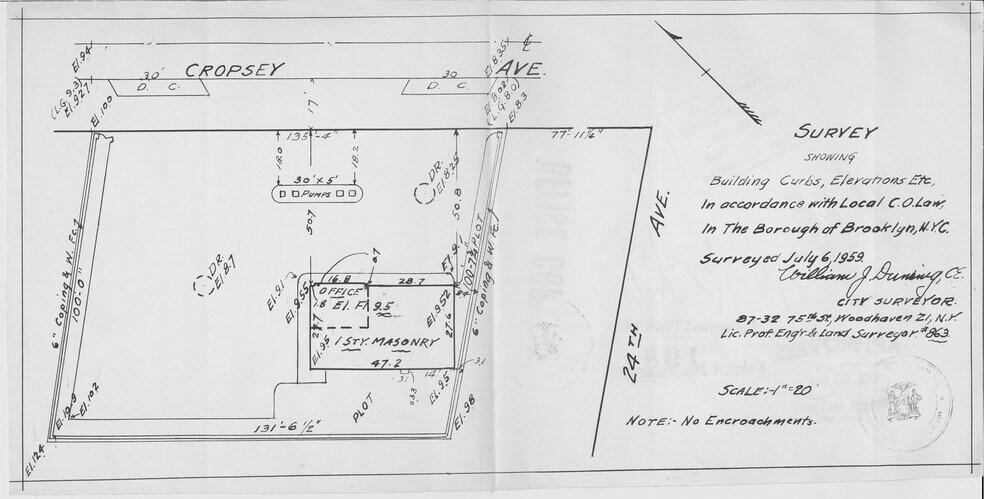 CROPSEY AVE.
30' D. C.
30 D. C.
El. 9.4
(L.G. 9.3)
El. 9.27
El. 10.0
El. 8.35
El. 8.02
(L.G. 8.0)
El. 8.3
17'
135'-4"
77'-11¼"
18.0
18.2
30' x 5'
PUMPS
507
50.8
DR.
El. 8.25
DR.
El. 8.7
6" Coping & W. Fc.
100'-0"
100'-7¾" PLOT
6" Coping & W. Fc.
El. 9.1
El. 9.55
16.8
28.7
OFFICE
El. Fl 9.5
1.8
27.7
El. 9.5
1 STY. MASONRY
47.2
El. 9.1
El. 9.52
27.6
3.1
3.1
14'
El. 9.5
El. 9.8
El. 10.2
El. 12.4
PLOT
131'-6½"
24TH AVE.
SURVEY
SHOWING
Building Curbs, Elevations Etc,
In accordance with Local C.O. Law,
In The Borough of Brooklyn, N.Y.C.
Surveyed July 6, 1959.
William J. Duning, C.E.
CITY SURVEYOR.
87-32 75th St, Woodhaven 21, N.Y.
Lic. Prof. Eng'r & Land Surveyor #863
SCALE:-1"=20'
NOTE:- No Encroachments.